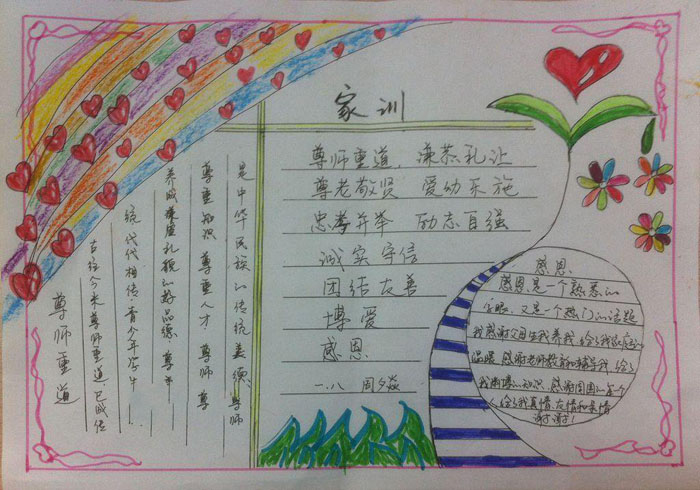 家训
尊师重道、谦恭礼让
尊老敬贤 爱幼乐施
忠孝并举 励志自强
诚实守信
团结友善
博爱
感恩
一.八 周夕焱
尊师重道
古往今来尊师重道已成传
统代代相传青少年学生
养成礼貌的好品德、尊
尊重知识 尊重人才 尊师 尊
是中华民族的传统美德、尊师
感恩
感恩是一个熟悉的
字眼、又是一个热门的话题
我感谢父母生我养我、给了我家庭的
温暖、感谢老师教育和辅导我、给了
我的知识、感谢周围的每一个
人给了我真情、友情和亲情
谢谢!